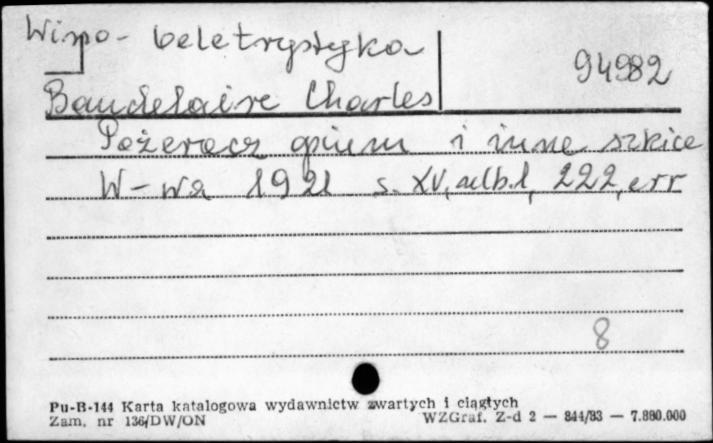 Wspo- beletrystyka
94982
Baudelaire Charles
Pożeracz opium i inne szkice
W-wa 1921 s. XV, nlb.1, 222, err
8
Pu-B-144 Karta katalogowa wydawnictw zwartych i ciągłych
Zam. nr 136/DW/ON WZGraf. Z-d 2 — 844/83 — 7.880.000